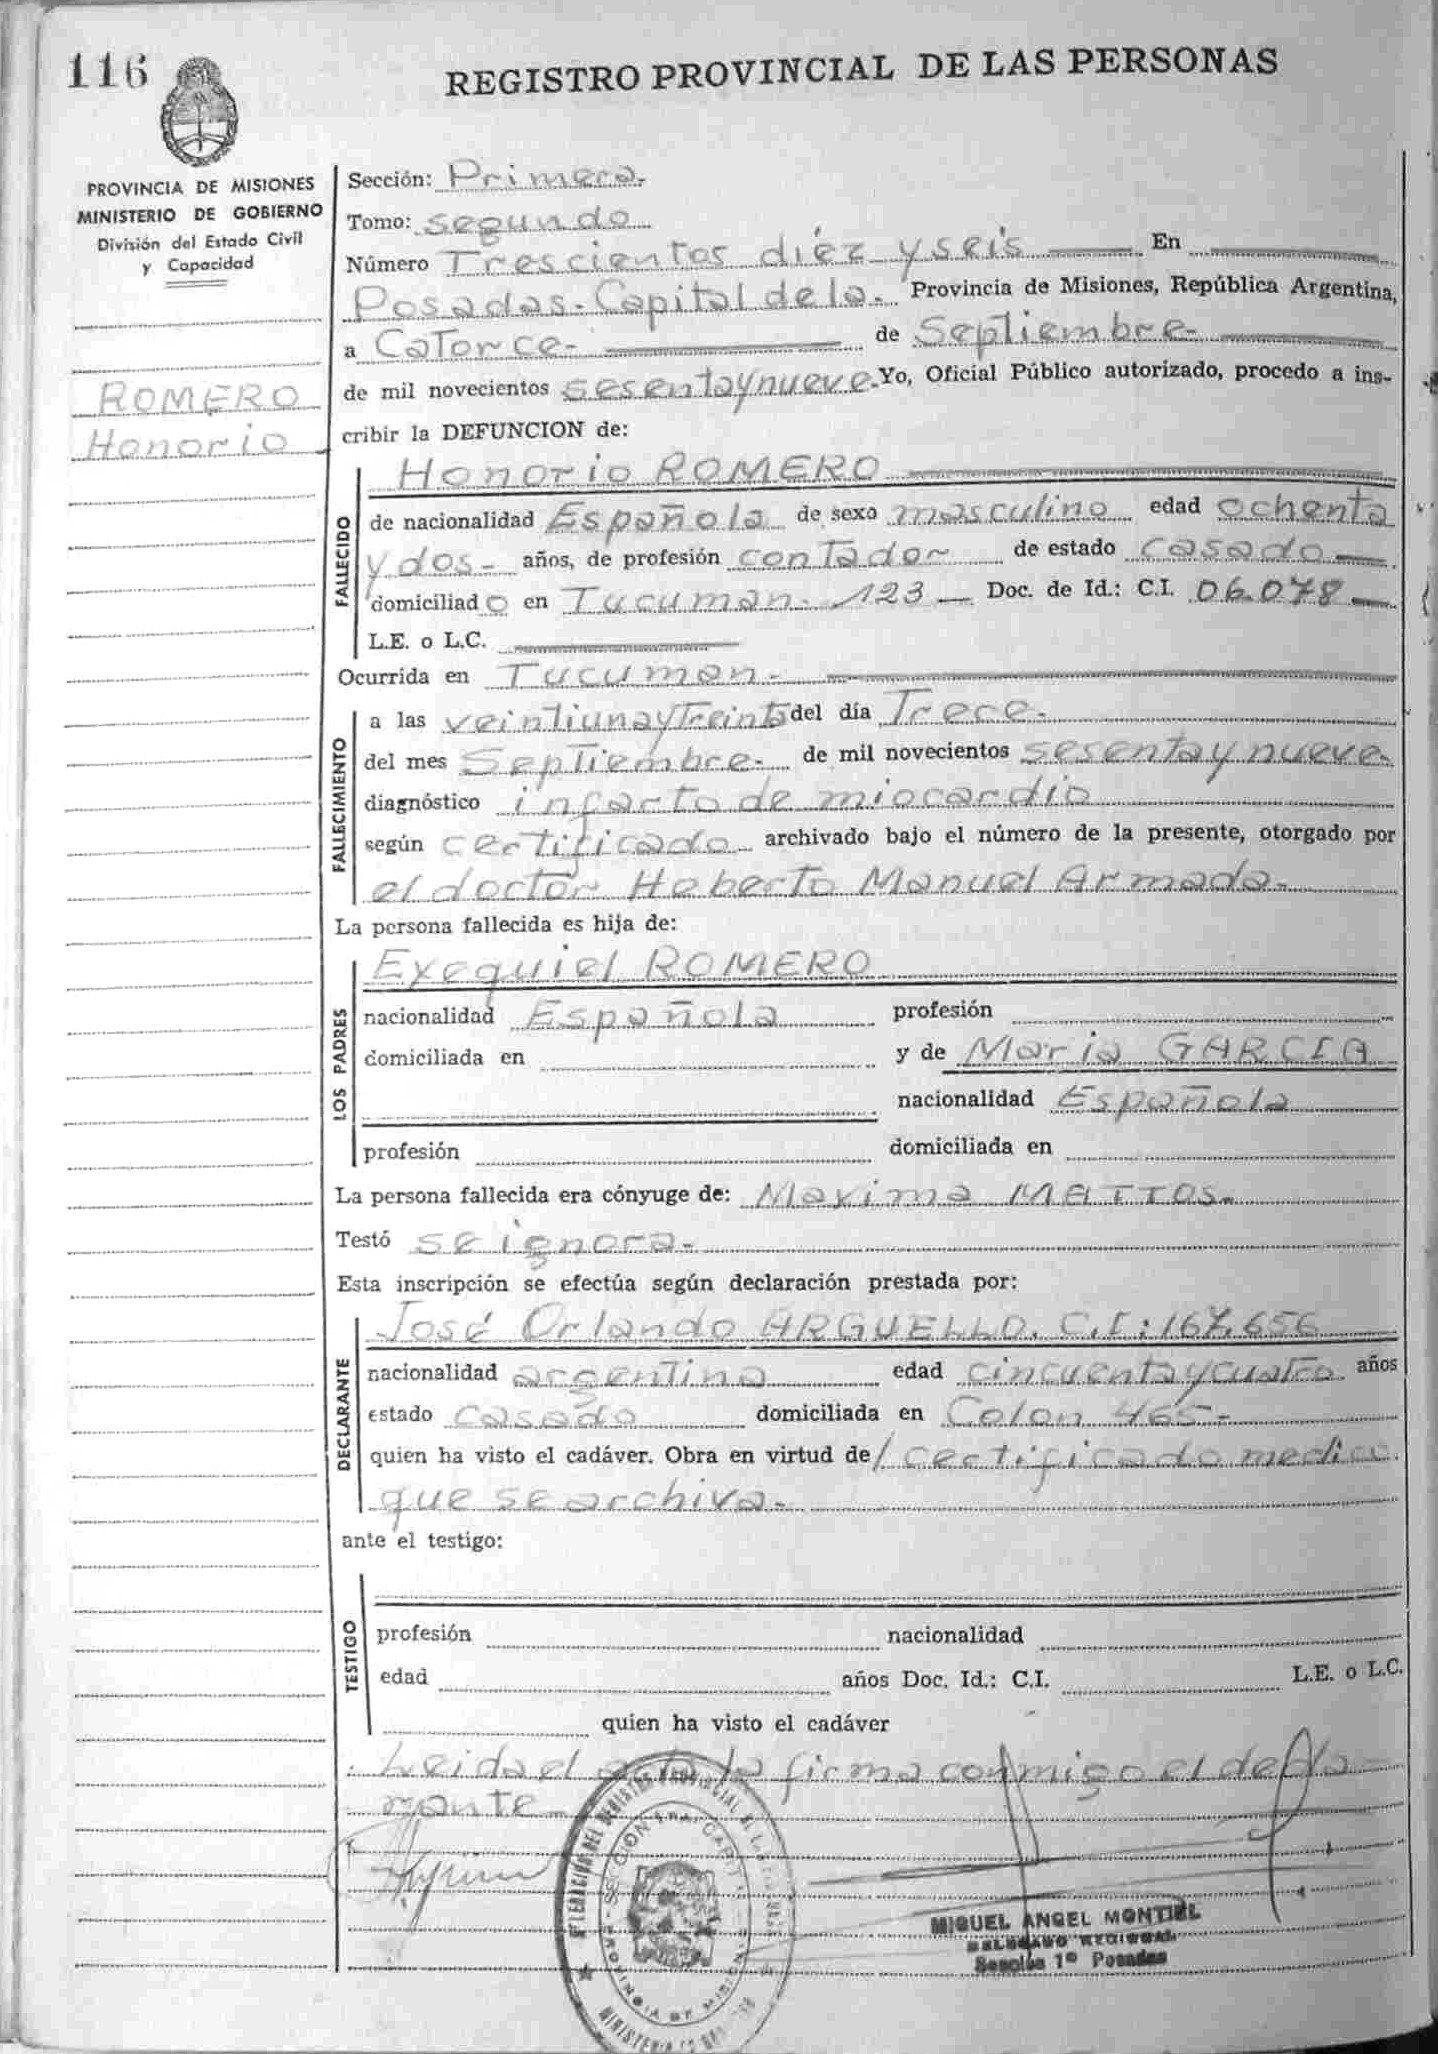 116
REGISTRO PROVINCIAL DE LAS PERSONAS
PROVINCIA DE MISIONES
MINISTERIO DE GOBIERNO
División del Estado Civil
y Capacidad
ROMERO
Honorio
Sección: Primera-
Tomo: segundo
Número Trescientos diéz y seis En
Posadas-Capital de la- Provincia de Misiones, República Argentina,
a Catorce- de Septiembre-
de mil novecientos sesenta y nueve. Yo, Oficial Público autorizado, procedo a ins-
cribir la DEFUNCION de:
FALLECIDO
Honorio ROMERO
de nacionalidad Española de sexo masculino edad ochenta
y dos- años, de profesión contador de estado casado
domiciliado en Tucuman- 123 Doc. de Id.: C.I. 06.078
L.E. o L.C.
Ocurrida en Tucuman-
FALLECIMIENTO
a las veintiuna y Treinta del día Trece-
del mes Septiembre- de mil novecientos sesenta y nueve-
diagnóstico infarto de miocardio
según certificado archivado bajo el número de la presente, otorgado por
el doctor Heberto Manuel Armada-
La persona fallecida es hija de:
LOS PADRES
Exequiel ROMERO
nacionalidad Española profesión
domiciliada en y de Maria GARCIA
nacionalidad Española
profesión domiciliada en
La persona fallecida era cónyuge de: Maxima MATTOS-
Testó se ignora-
Esta inscripción se efectúa según declaración prestada por:
DECLARANTE
José Orlando ARGUELLO. C.I: 167.656
nacionalidad argentina edad cincuenta y cuatro años
estado casado domiciliada en Colon 465-
quien ha visto el cadáver. Obra en virtud de/ certificado medico
que se archiva-
ante el testigo:
TESTIGO
profesión nacionalidad
edad años Doc. Id.: C.I. L.E. o L.C.
quien ha visto el cadáver
Leida el acta la firma conmigo el decla-
rante
MIGUEL ANGEL MONTIEL
DELEGADO REGIONAL
Sección 1º Posadas